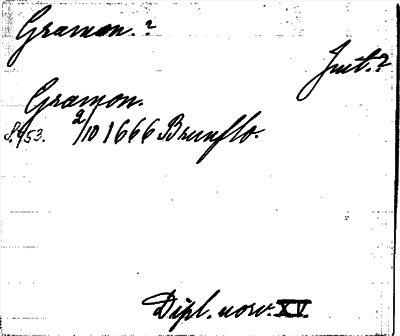 Gramon. ?
Jmt. ?
Gramon.
S. 953. 2/10 1666 Brunflo.
Dipl. norv. XV.